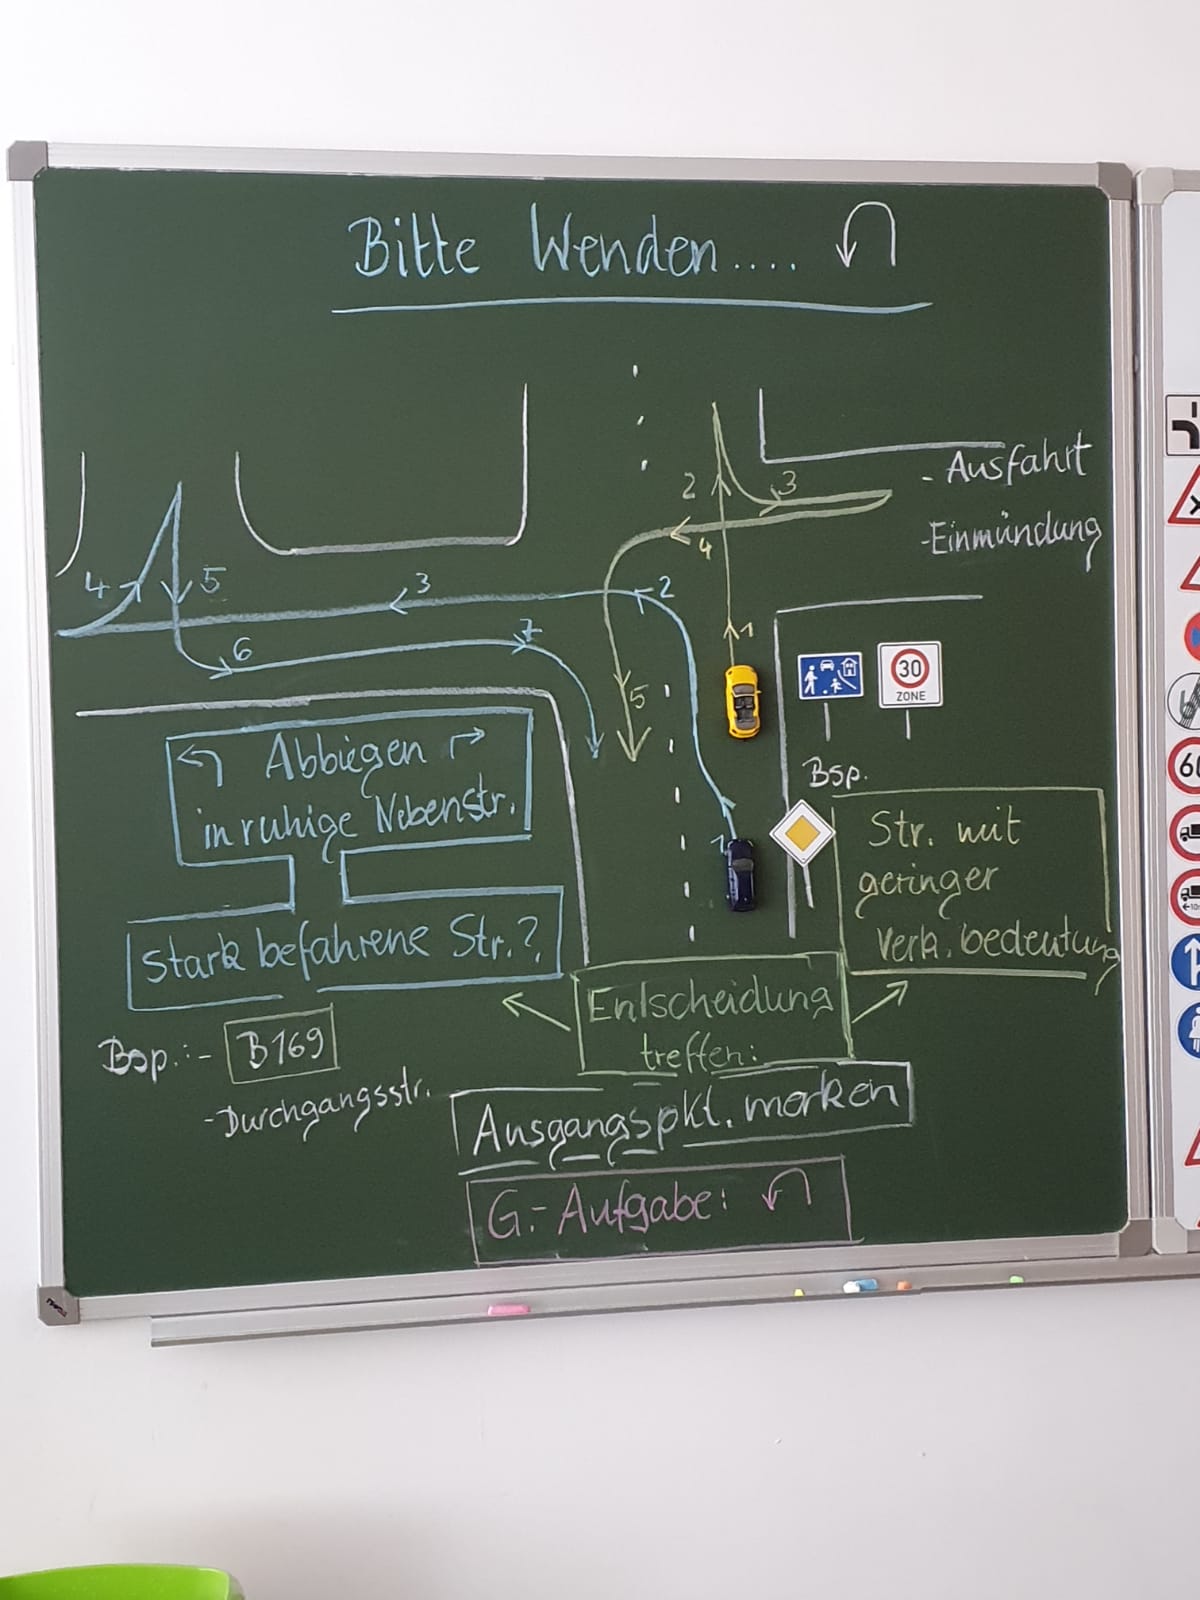 Bitte Wenden....
- Ausfahrt
- Einmündung
2
3
4
1
5
4
5
3
2
6
7
1
30
ZONE
Bsp.
Abbiegen
in ruhige Nebenstr.
stark befahrene Str.?
Str. mit
geringer
Verk. bedeutung
Entscheidung
treffen:
Bsp.:- B169
- Durchgangsstr.
Ausgangspkt. merken
G.- Aufgabe:
60